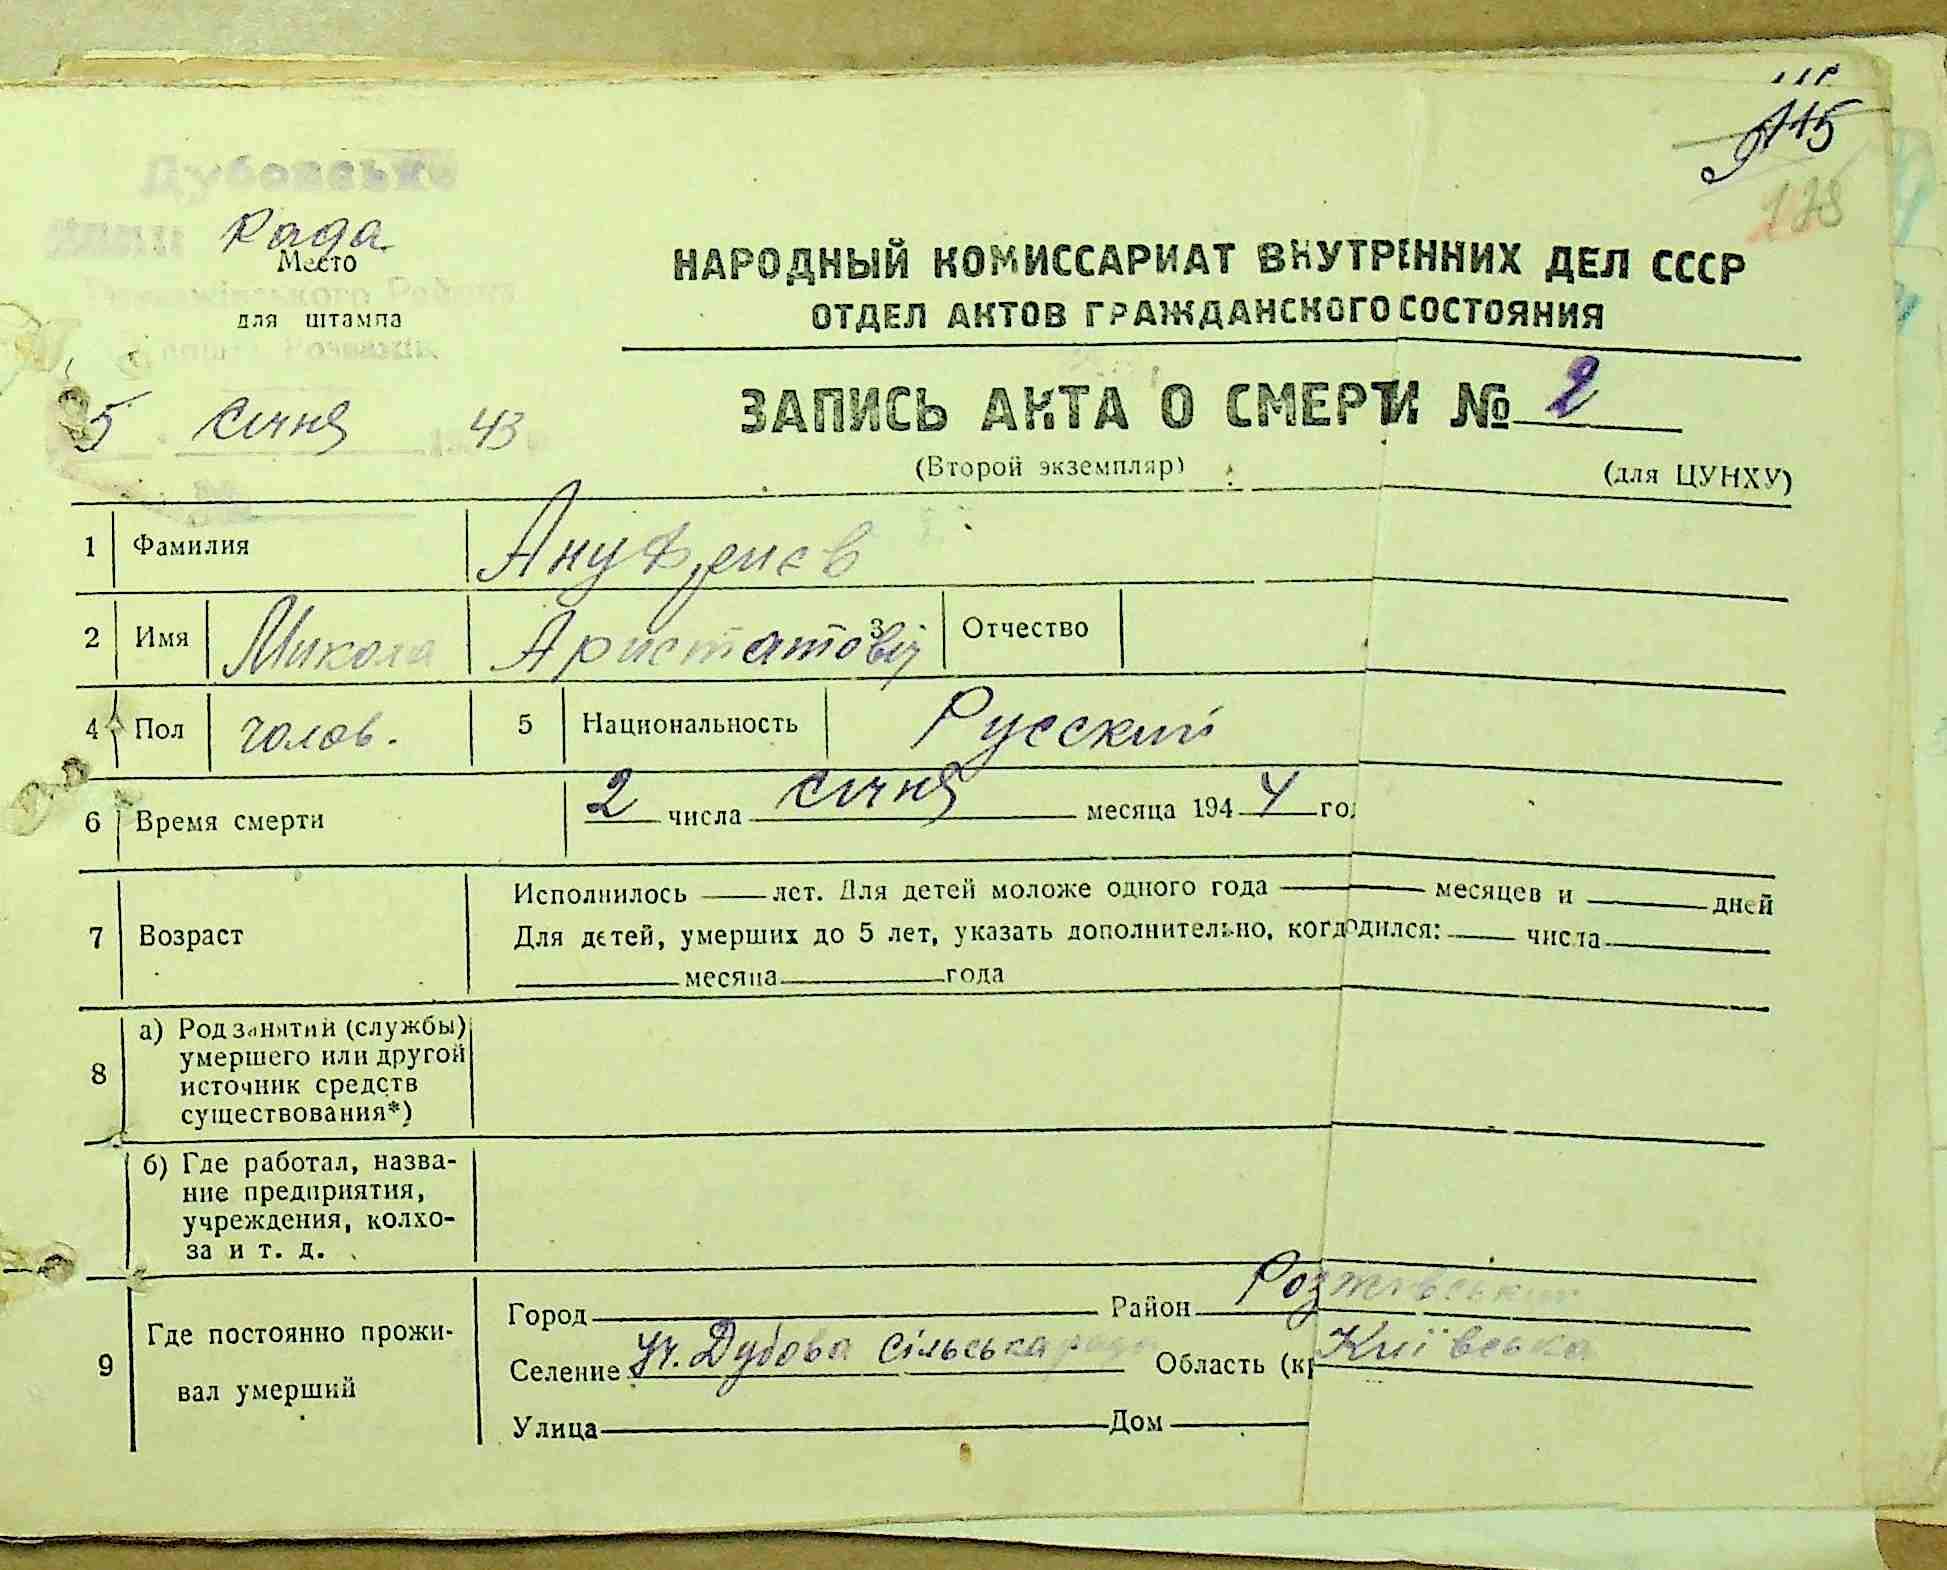 115
Рада
Место
для штампа
5 січня 43
НАРОДНЫЙ КОМИССАРИАТ ВНУТРЕННИХ ДЕЛ СССР
ОТДЕЛ АКТОВ ГРАЖДАНСКОГО СОСТОЯНИЯ
ЗАПИСЬ АКТА О СМЕРТИ № 2
(Второй экземпляр) (для ЦУНХУ)
1 Фамилия Ануфриєв
2 Имя Микола Аристатовіч 3 Отчество
4 Пол голов. 5 Национальность Русский
6 Время смерти 2 числа січня месяца 194 4 го
7 Возраст
Исполнилось лет. Для детей моложе одного года месяцев и дней
Для детей, умерших до 5 лет, указать дополнительно, когд одился: числа
месяца года
8 а) Род занятий (службы)
умершего или другой
источник средств
существования*)
б) Где работал, назва-
ние предприятия,
учреждения, колхо-
за и т. д.
9 Где постоянно прожи-
вал умерший
Город Район
Селение Дубова сільська рада Область (кр Київська
Улица Дом